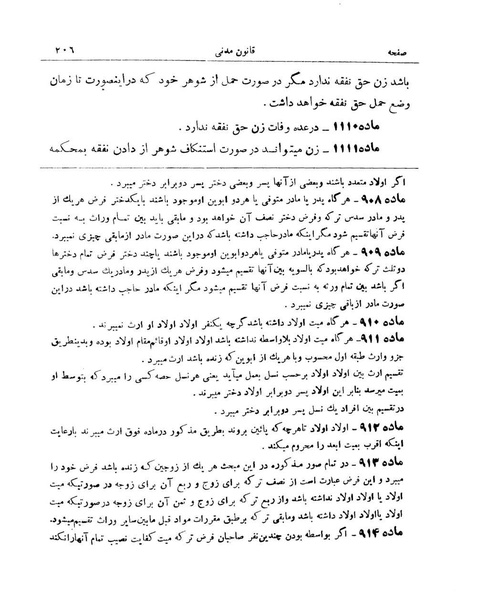 صفحه
قانون مدنی
۲۰۶
باشد زن حق نفقه ندارد مگر در صورت حمل از شوهر خود که دراینصورت تا زمان
وضع حمل حق نفقه خواهد داشت .
ماده ۱۱۱۰ ـ درعده وفات زن حق نفقه ندارد .
ماده ۱۱۱۱ ـ زن میتواند در صورت استنکاف شوهر از دادن نفقه بمحکمه
اگر اولاد متعدد باشند وبعضی از آنها پسر وبعضی دختر پسر دوبرابر دختر میبرد .
ماده ۹۰۸ ـ هرگاه پدر یا مادر متوفی یا هر دو ابوین اوموجود باشند بایکدختر فرض هریك از
پدر و مادر سدس ترکه وفرض دختر نصف آن خواهد بود و مابقی باید بین تمام وراث به نسبت
فرض آنهاتقسیم شود مگر اینکه مادرحاجب داشته باشدکه دراین صورت مادر ازمابقی چیزی نمیبرد.
ماده ۹۰۹ ـ هرگاه پدریامادر متوفی یاهردوابوین اوموجود باشند باچند دختر فرض تمام دخترها
دوثلث ترکه خواهدبودکه بالسویه بین آنها تقسیم میشود وفرض هریك ازپدر ومادریك سدس ومابقی
اگر باشد بین تمام ورثه به نسبت فرض آنها تقسیم میشود مگر اینکه مادر حاجب داشته باشد دراین
صورت مادر ازباقی چیزی نمیبرد .
ماده ۹۱۰ ـ هرگاه میت اولاد داشته باشد گرچه یکنفر اولاد اولاد او ارث نمیبرند .
ماده ۹۱۱ـ هرگاه میت اولاد بلاواسطه نداشته باشد اولاد اولاد اوقائم‌مقام اولاد بوده وبدینطریق
جزو وارث طبقه اول محسوب وباهریك از ابوین که زنده باشد ارث میبرد .
تقسیم ارث بین اولاد اولاد برحسب نسل بعمل میآید یعنی هرنسل حصه کسی را میبرد که بتوسط او
بمیت میرسد بنابر این اولاد پسر دوبرابر اولاد دختر میبرند .
درتقسیم بین افراد یك نسل پسر دوبرابر دختر میبرد .
ماده ۹۱۲ ـ اولاد اولاد تاهرچه که پائین بروند بطریق مذکور درماده فوق ارث میبرند بارعایت
اینکه اقرب بمیت ابعد را محروم میکند .
ماده ۹۱۳ ـ در تمام صور مذکوره در این مبحث هر یك از زوجین که زنده باشد فرض خود را
میبرد و این فرض عبارت است از نصف ترکه برای زوج و ربع آن برای زوجه درصورتیکه میت
اولاد یا اولاد اولاد نداشته باشد واز ربع ترکه برای زوج و ثمن آن برای زوجه درصورتیکه میت
اولاد یااولاد اولاد داشته باشد ومابقی ترکه برطبق مقررات مواد قبل مابین‌سایر وراث تقسیم‌میشود.
ماده ۹۱۴ ـ اگر بواسطه بودن چندین‌نفر صاحبان فرض ترکه میت کفایت نصیب تمام آنهارانکند